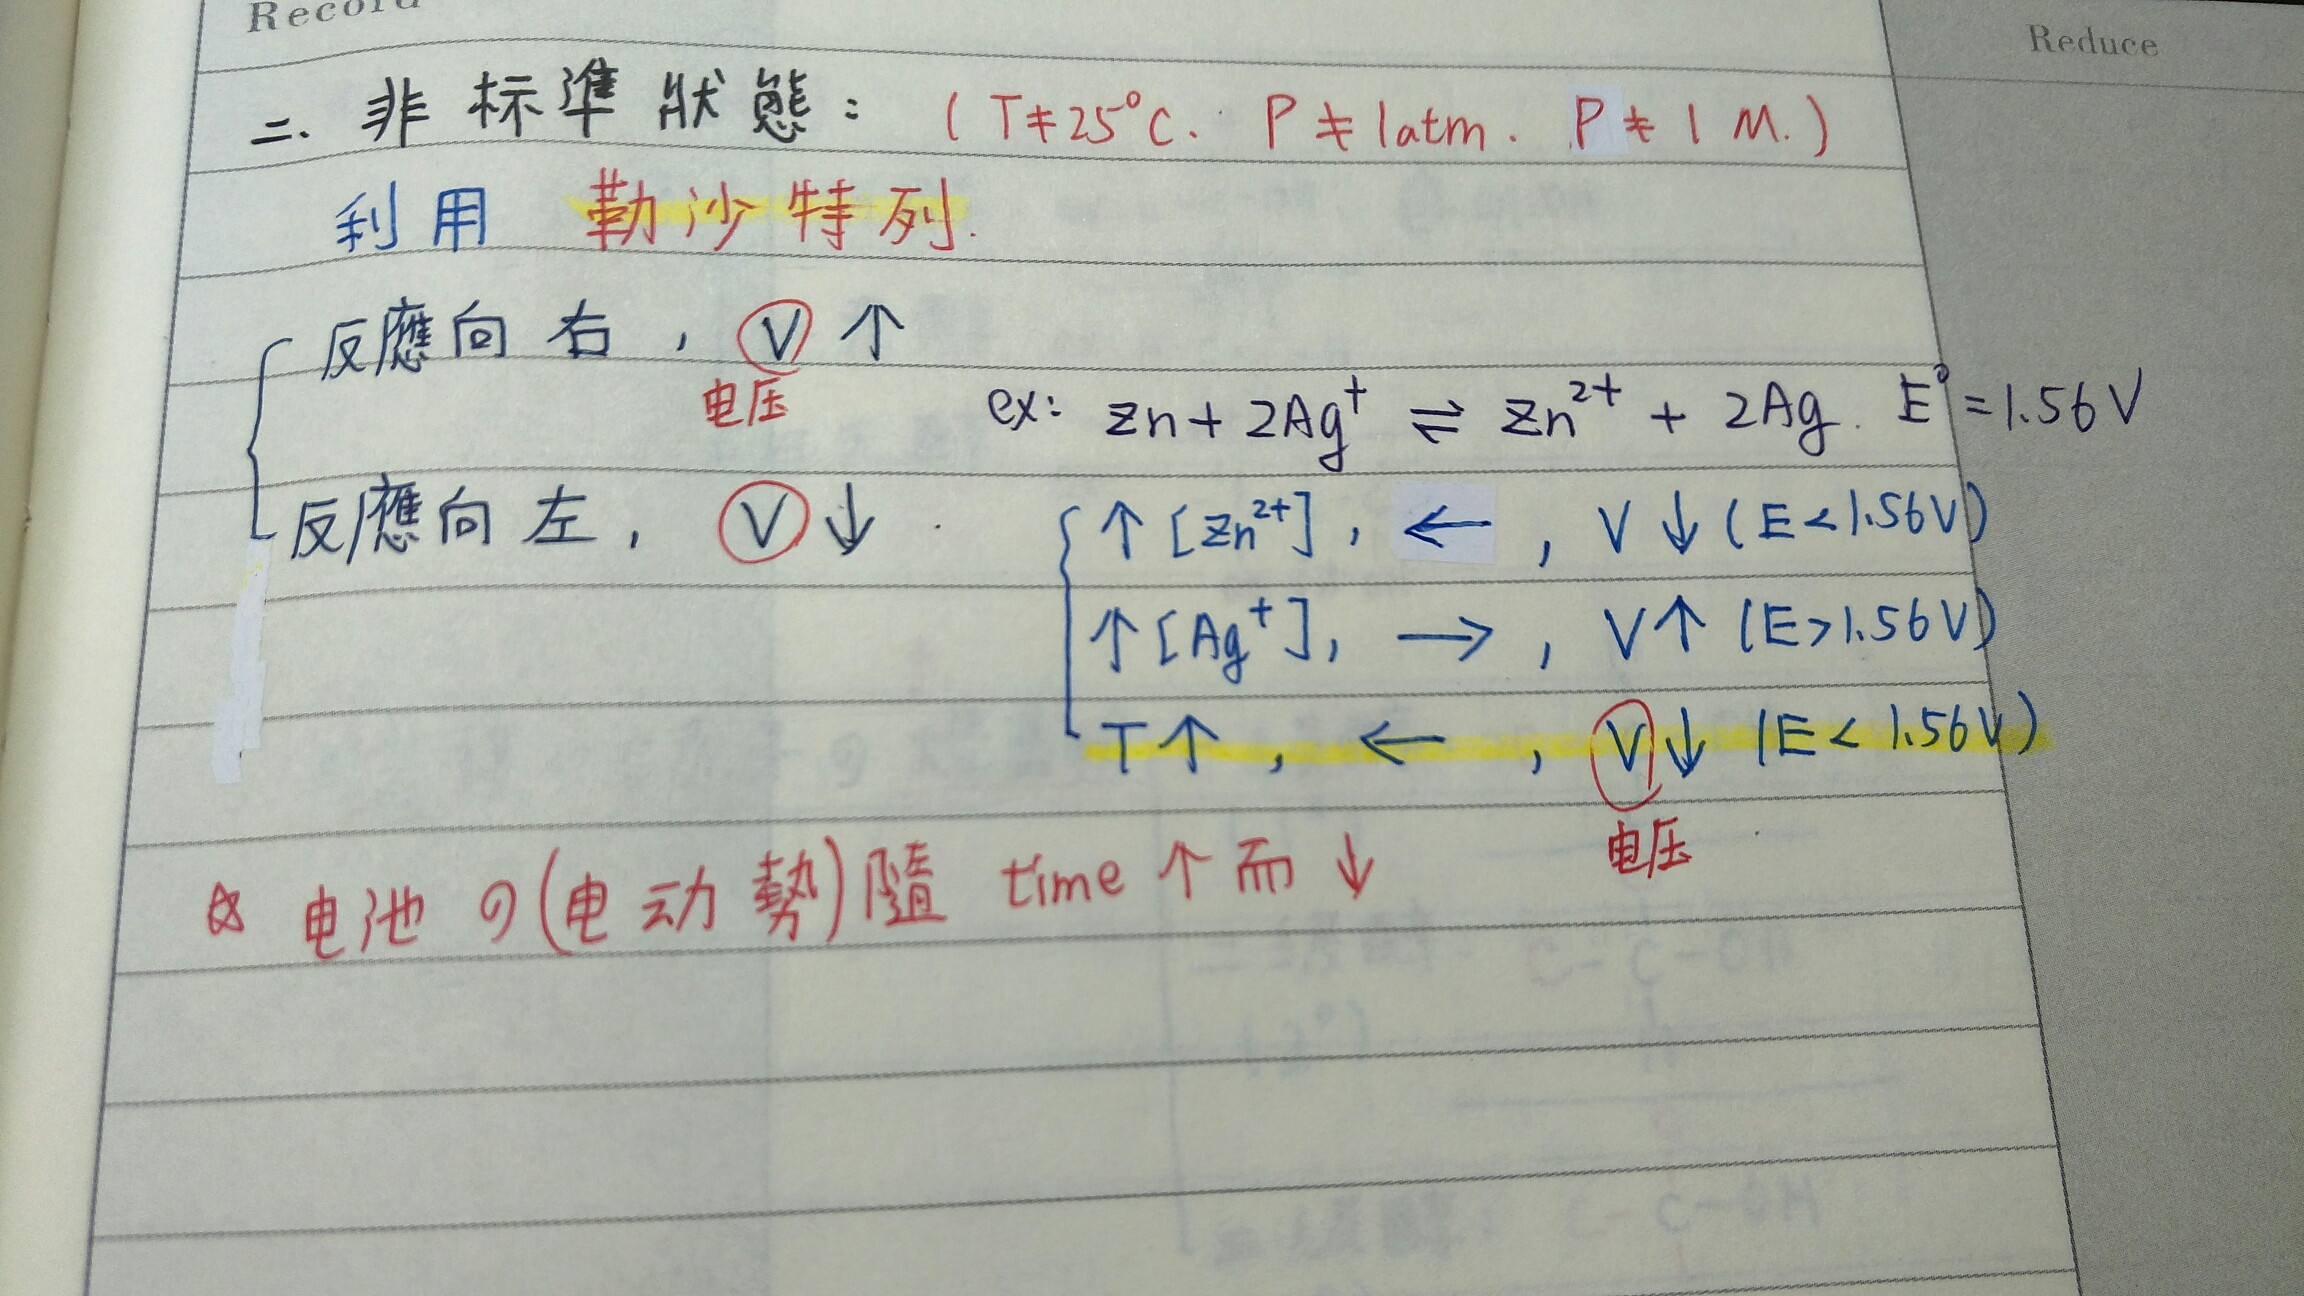 Record
Reduce
二. 非标準狀態: (T≠25°C. P≠1atm. P≠1M.)
利用 勒沙特列.
反應向右, V↑
电压
ex: Zn + 2Ag⁺ ⇌ Zn²⁺ + 2Ag. E° = 1.56V
反應向左, V↓.
↑[Zn²⁺], ←, V↓(E<1.56V)
↑[Ag⁺], →, V↑(E>1.56V)
T↑, ←, V↓(E<1.56V)
电压
☆ 电池の(电动勢)隨 time↑而↓